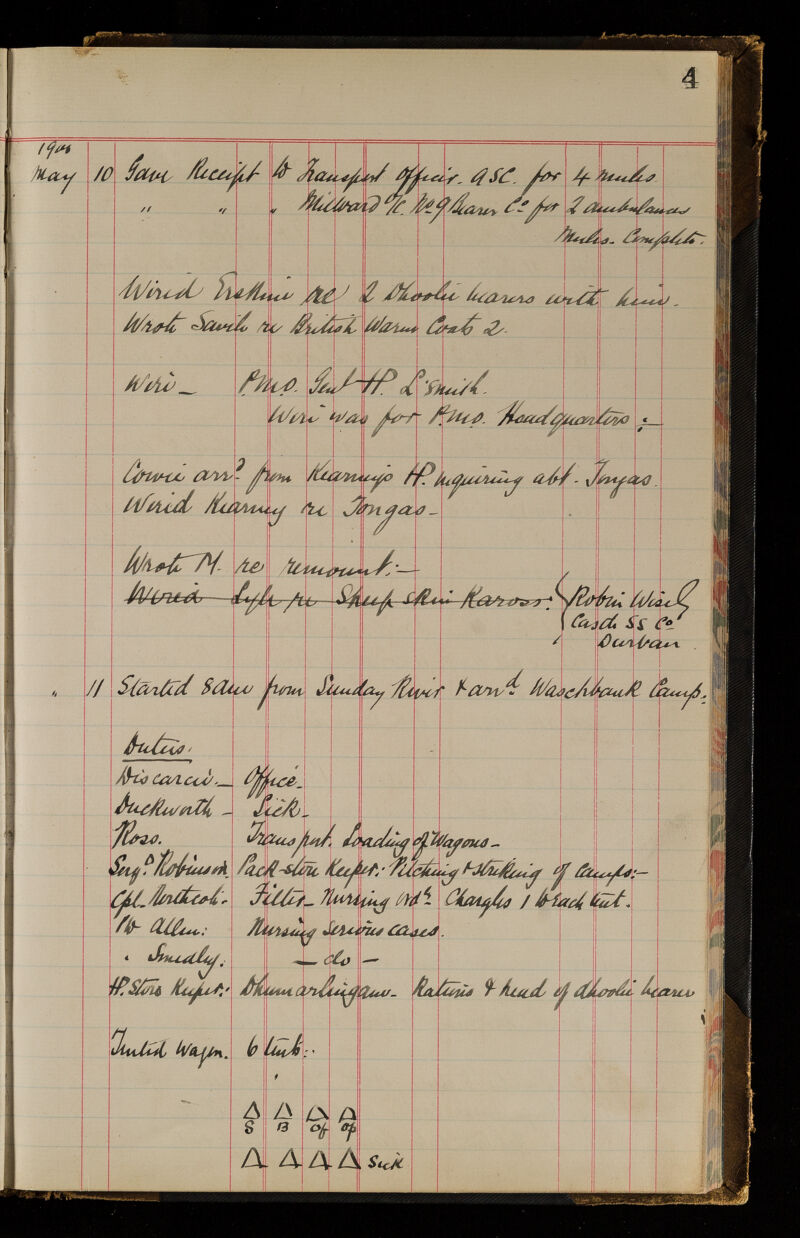 4
1900
May 10 Gave Receipt to Transport Officer. ASC. for 4 mules
" " " Millward O/C. No 9 Bearer Co for 2 ambulances
Mules. Complete.
Wired Erskine re 2 Dhoolie bearers with him.
Wrote Savile re British Warm Coats 2.
Wire — P.M.O. Genl HP. L'smith.
Wire was for P.M.O. Headquarters :—
Cowie arrd from Kearney's HP. inquiring abt. Tongas.
Wired Kearney re Tongas —
Wrote M. re remount :—
Wired Lyle re Sheep skin Kaross: Robin Wisely
Castle SS Co
Durban
" 11 Started 8 am from Sunday River & arrd Waschbank Camp:
Duties.
— Office.
Duckworth — Sick.
Ross. Transport. Loading of Wagons —
Sergt Robinson Pack-store Keeper. Pitching & striking of camps:—
Cpl. Northcote. Filter — Nursing ords. Charghs 1 to each tent.
Pte Allen: Nursing serious cases.
" Smedley. — do —
HP. Store Keeper: — Rations & head of dhoolie bearer
Tented Wagon. 6 tents:
S B Of Op
Sick